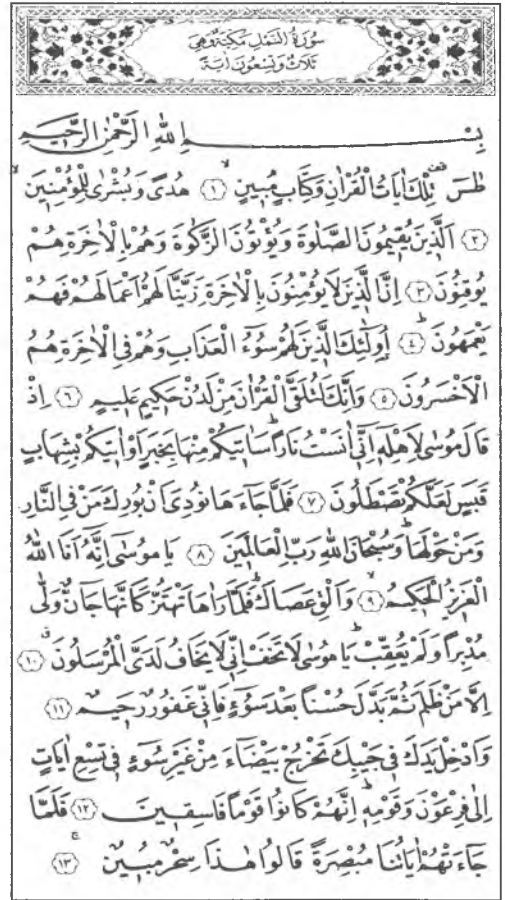 سُورَةُ النَّمْلِ مَكِّيَّةٌ وَهِيَ
ثَلَاثٌ وَتِسْعُونَ اٰيَةً
بِسْمِ اللّٰهِ الرَّحْمٰنِ الرَّحِيمِ
طٰسٓ تِلْكَ اٰيَاتُ الْقُرْاٰنِ وَكِتَابٍ مُبِينٍ ﴿١﴾ هُدًى وَبُشْرٰى لِلْمُؤْمِنِينَ
﴿٢﴾ اَلَّذِينَ يُقِيمُونَ الصَّلٰوةَ وَيُؤْتُونَ الزَّكٰوةَ وَهُمْ بِالْاٰخِرَةِ هُمْ
يُوقِنُونَ ﴿٣﴾ اِنَّ الَّذِينَ لَا يُؤْمِنُونَ بِالْاٰخِرَةِ زَيَّنَّا لَهُمْ اَعْمَالَهُمْ فَهُمْ
يَعْمَهُونَ ﴿٤﴾ اُولٰٓئِكَ الَّذِينَ لَهُمْ سُوٓءُ الْعَذَابِ وَهُمْ فِي الْاٰخِرَةِ هُمُ
الْاَخْسَرُونَ ﴿٥﴾ وَاِنَّكَ لَتُلَقَّى الْقُرْاٰنَ مِنْ لَدُنْ حَكِيمٍ عَلِيمٍ ﴿٦﴾ اِذْ
قَالَ مُوسٰى لِاَهْلِهٖٓ اِنّٖٓي اٰنَسْتُ نَارًا سَاٰتِيكُمْ مِنْهَا بِخَبَرٍ اَوْ اٰتِيكُمْ بِشِهَابٍ
قَبَسٍ لَعَلَّكُمْ تَصْطَلُونَ ﴿٧﴾ فَلَمَّا جَٓاءَهَا نُودِيَ اَنْ بُورِكَ مَنْ فِي النَّارِ
وَمَنْ حَوْلَهَا وَسُبْحَانَ اللّٰهِ رَبِّ الْعَالَمِينَ ﴿٨﴾ يَا مُوسٰٓى اِنَّهُٓ اَنَا اللّٰهُ
الْعَزِيزُ الْحَكِيمُ ﴿٩﴾ وَاَلْقِ عَصَاكَ فَلَمَّا رَاٰهَا تَهْتَزُّ كَاَنَّهَا جَٓانٌّ وَلّٰى
مُدْبِرًا وَلَمْ يُعَقِّبْ يَا مُوسٰى لَا تَخَفْ اِنّٖي لَا يَخَافُ لَدَيَّ الْمُرْسَلُونَ ﴿١٠﴾
اِلَّا مَنْ ظَلَمَ ثُمَّ بَدَّلَ حُسْنًا بَعْدَ سُوٓءٍ فَاِنّٖي غَفُورٌ رَحِيمٌ ﴿١١﴾
وَاَدْخِلْ يَدَكَ فِي جَيْبِكَ تَخْرُجْ بَيْضَٓاءَ مِنْ غَيْرِ سُوٓءٍ فِي تِسْعِ اٰيَاتٍ
اِلٰى فِرْعَوْنَ وَقَوْمِهٖ اِنَّهُمْ كَانُوا قَوْمًا فَاسِقِينَ ﴿١٢﴾ فَلَمَّا
جَٓاءَتْهُمْ اٰيَاتُنَا مُبْصِرَةً قَالُوا هٰذَا سِحْرٌ مُبِينٌ ﴿١٣﴾